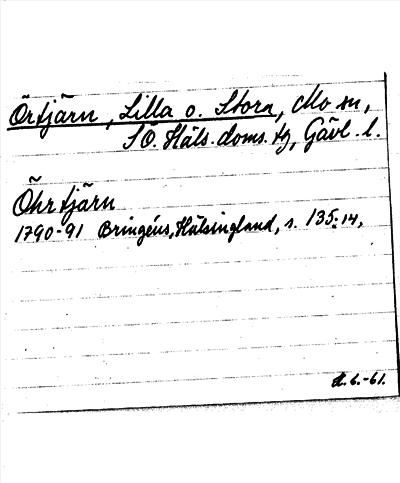 Örtjärn, Lilla o. Stora, Mo sn,
SO. Häls. doms. tg, Gävl. l.
Öhrtjärn
1790-91 Bringéus, Hälsingland, s. 135:14,